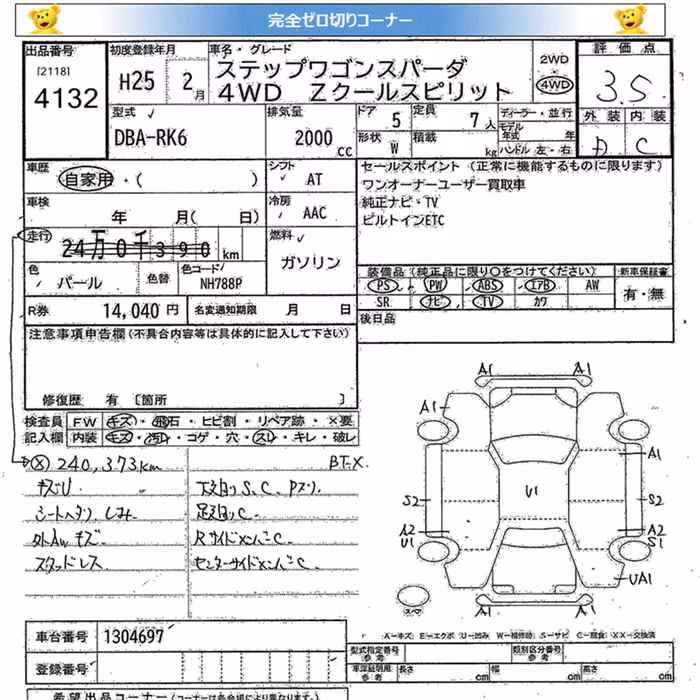 完全ゼロ切りコーナー
出品番号
[2118]
4132
初度登録年月
H25 2月
車名・グレード
ステップワゴンスパーダ
4WD Zクールスピリット
2WD
4WD
評価点
3.5
外装 内装
D C
型式
DBA-RK6
排気量
2000 CC
ドア 5
定員 7人
形状 W
積載 kg
ディーラー・並行
モデル年式 年
ハンドル 左・右
車歴
自家用・( )
シフト AT
車検
年 月( 日)
冷房 AAC
走行
24万0千390 km
燃料
ガソリン
色 パール
色替
色コード NH788P
R券 14,040 円
名変通知期限 月 日
セールスポイント (正常に機能するものに限ります)
ワンオーナーユーザー買取車
純正ナビ・TV
ビルトインETC
装備品(純正品に限り〇をつけてください)
新車保証書
PS PW ABS エアB AW
有・無
SR ナビ TV カワ
後日品
注意事項申告欄(不具合内容等は具体的に記入して下さい)
修復歴 有 [箇所 ]
検査員
記入欄
FW キズ・飛石・ヒビ割・リペア跡・×要
内装 キズ・汚れ・コゲ・穴・スレ・キレ・破レ
Ⓧ 240,373km BT-X
キズU
シートヘタリ、しみ
外AWキズ
スタッドレス
下回りS、C、Pヌリ
足回りC
RサイドメンバーC
センターサイドメンバーC
A1 A1
A1
A1
U1
S2 S2
A2 A2
U1 S1
UA1
スペア
A1 A1
A=キズ E=エクボ U=凹み W=補修跡 S=サビ C=腐食 XX=交換済
車台番号 1304697
登録番号
型式指定番号 参考
類別区分番号 参考
車庫証明用 参考
長さ cm 幅 cm 高さ cm
希望出品コーナー